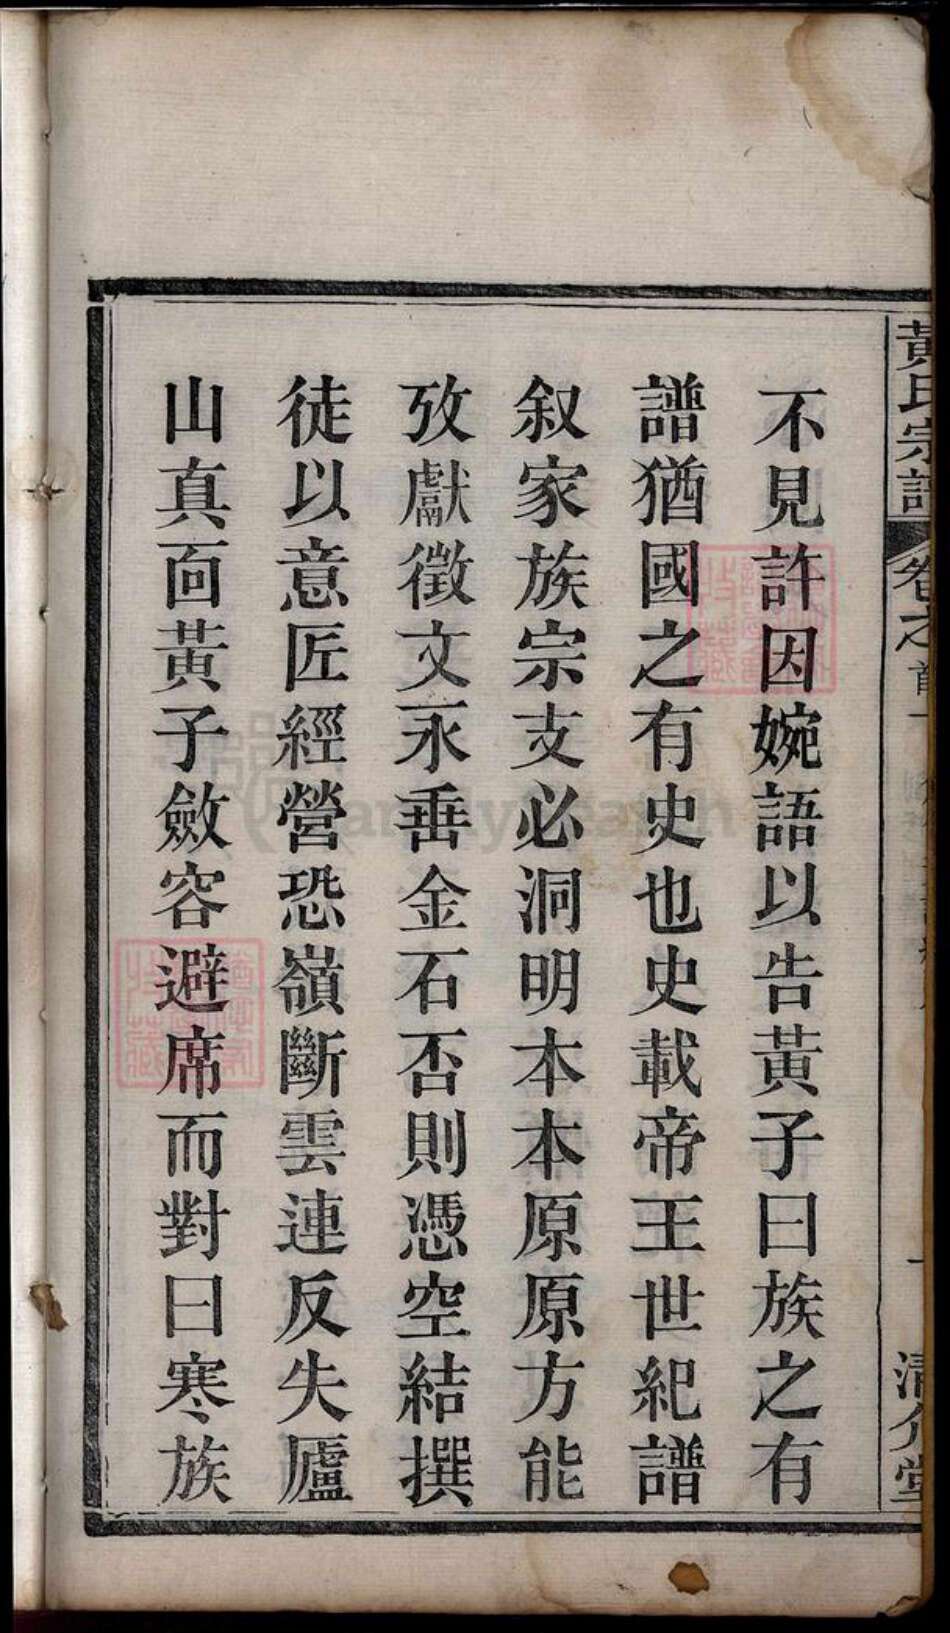 黃氏宗譜 卷之首 一 清介堂
不見許因婉語以告黃子曰族之有
譜猶國之有史也史載帝王世紀譜
叙家族宗支必洞明本本原原方能
攷獻徵文永垂金石否則憑空結撰
徒以意匠經營恐嶺斷雲連反失廬
山真面黃子斂容避席而對曰寒族